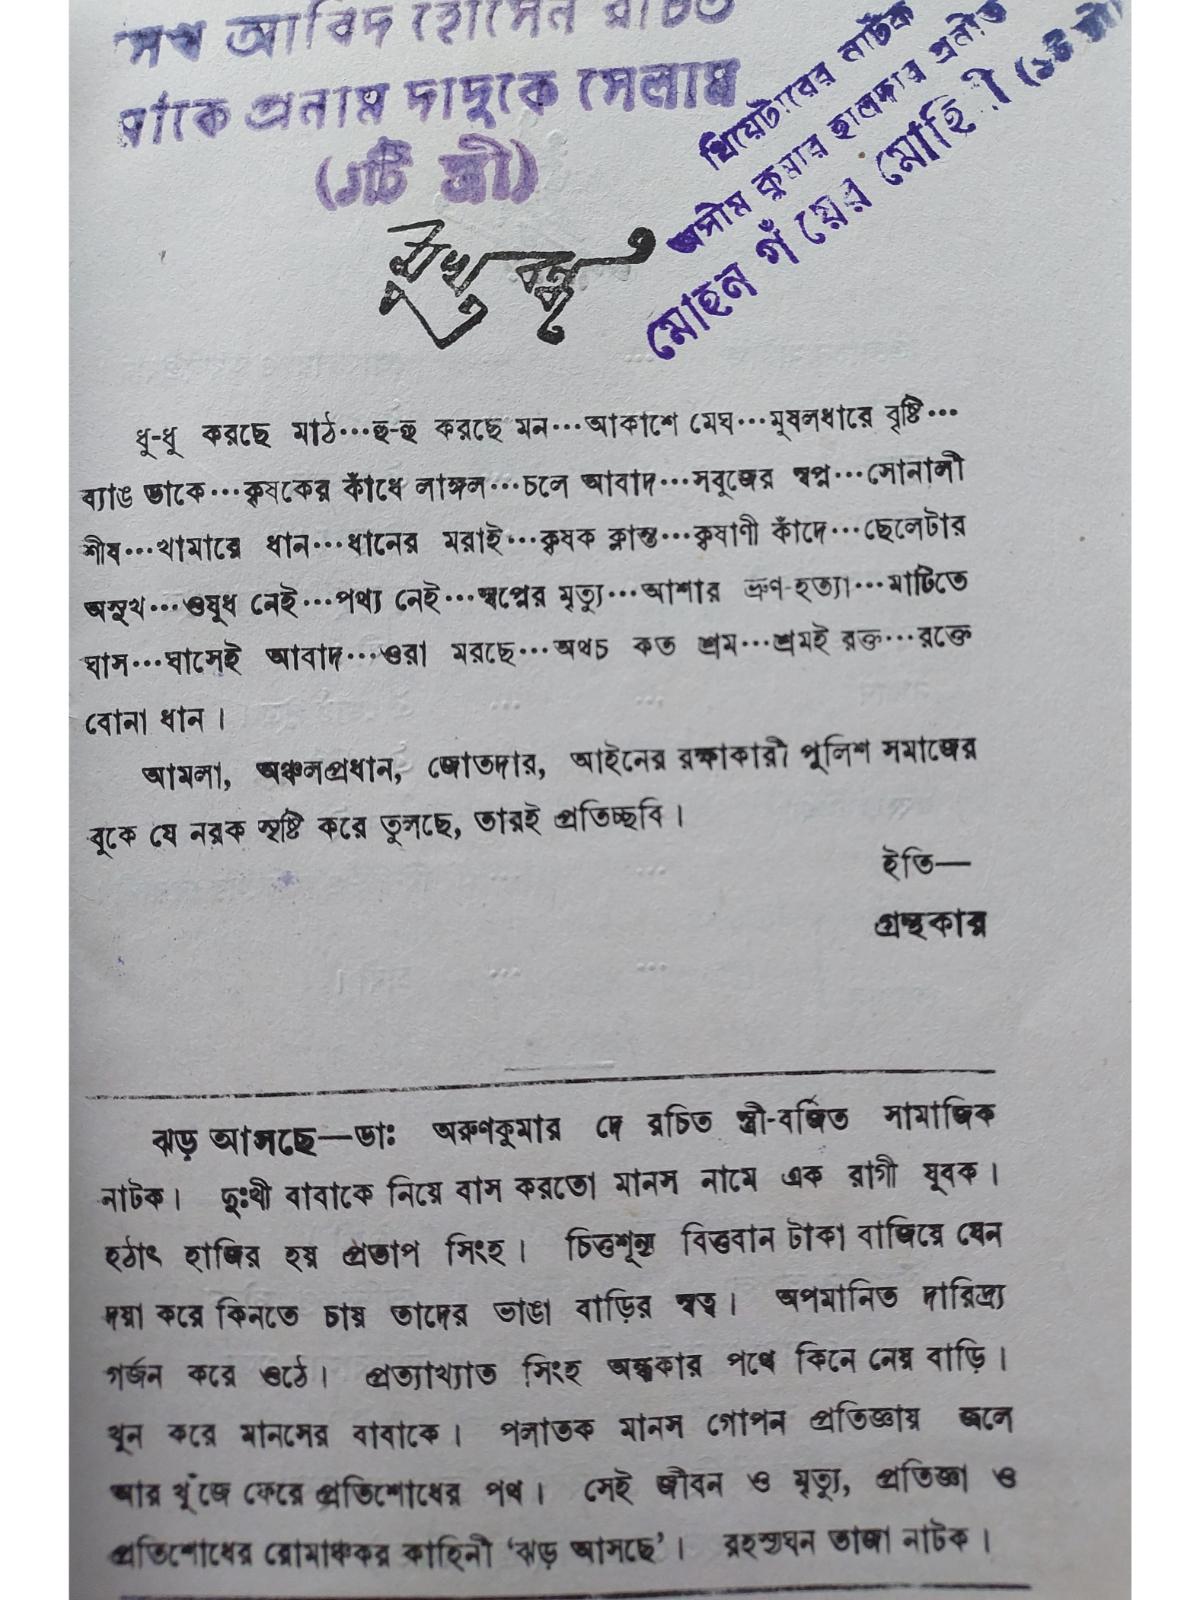 সেখ আবিদ হোসেন রচিত
মাকে প্রনাম দাদুকে সেলাম
(৩টি স্ত্রী)
থিয়েটারের নাটক
অসীম কুমার হালদার প্রনীত
মোহন গাঁয়ের মোহি
মুখবন্ধ
ধু-ধু করছে মাঠ···হু-হু করছে মন···আকাশে মেঘ···মুষলধারে বৃষ্টি···
ব্যাঙ ডাকে···কৃষকের কাঁধে লাঙ্গল···চলে আবাদ···সবুজের স্বপ্ন···সোনালী
শীষ···খামারে ধান···ধানের মরাই···কৃষক ক্লান্ত···কৃষাণী কাঁদে···ছেলেটার
অসুখ···ওষুধ নেই···পথ্য নেই···স্বপ্নের মৃত্যু···আশার ভ্রুণ-হত্যা···মাটিতে
ঘাস···ঘাসেই আবাদ···ওরা মরছে···অথচ কত শ্রম···শ্রমই রক্ত···রক্তে
বোনা ধান।
আমলা, অঞ্চলপ্রধান, জোতদার, আইনের রক্ষাকারী পুলিশ সমাজের
বুকে যে নরক সৃষ্টি করে তুলছে, তারই প্রতিচ্ছবি।
ইতি—
গ্রন্থকার
ঝড় আসছে—ডাঃ অরুণকুমার দে রচিত স্ত্রী-বর্জিত সামাজিক
নাটক। দুঃখী বাবাকে নিয়ে বাস করতো মানস নামে এক রাগী যুবক।
হঠাৎ হাজির হয় প্রতাপ সিংহ। চিত্তশূন্য বিত্তবান টাকা বাজিয়ে যেন
দয়া করে কিনতে চায় তাদের ভাঙা বাড়ির স্বত্ব। অপমানিত দারিদ্র্য
গর্জন করে ওঠে। প্রত্যাখ্যাত সিংহ অন্ধকার পথে কিনে নেয় বাড়ি।
খুন করে মানসের বাবাকে। পলাতক মানস গোপন প্রতিজ্ঞায় জ্বলে
আর খুঁজে ফেরে প্রতিশোধের পথ। সেই জীবন ও মৃত্যু, প্রতিজ্ঞা ও
প্রতিশোধের রোমাঞ্চকর কাহিনী ‘ঝড় আসছে’। রহস্যঘন তাজা নাটক।